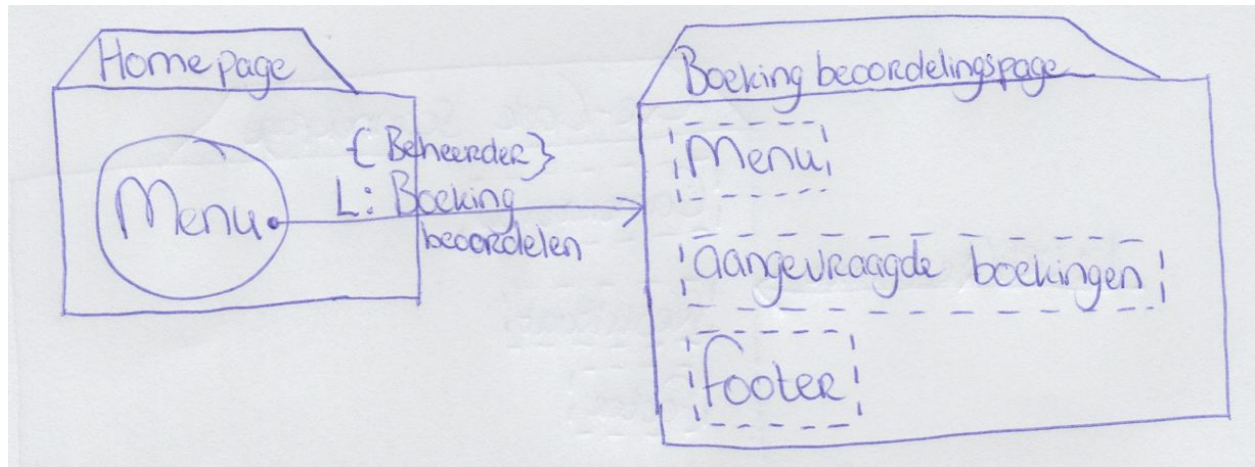 Homepage
Menu
{Beheerder}
L: Boeking
beoordelen
Boeking beoordelingspage
Menu
aangevraagde boekingen
footer